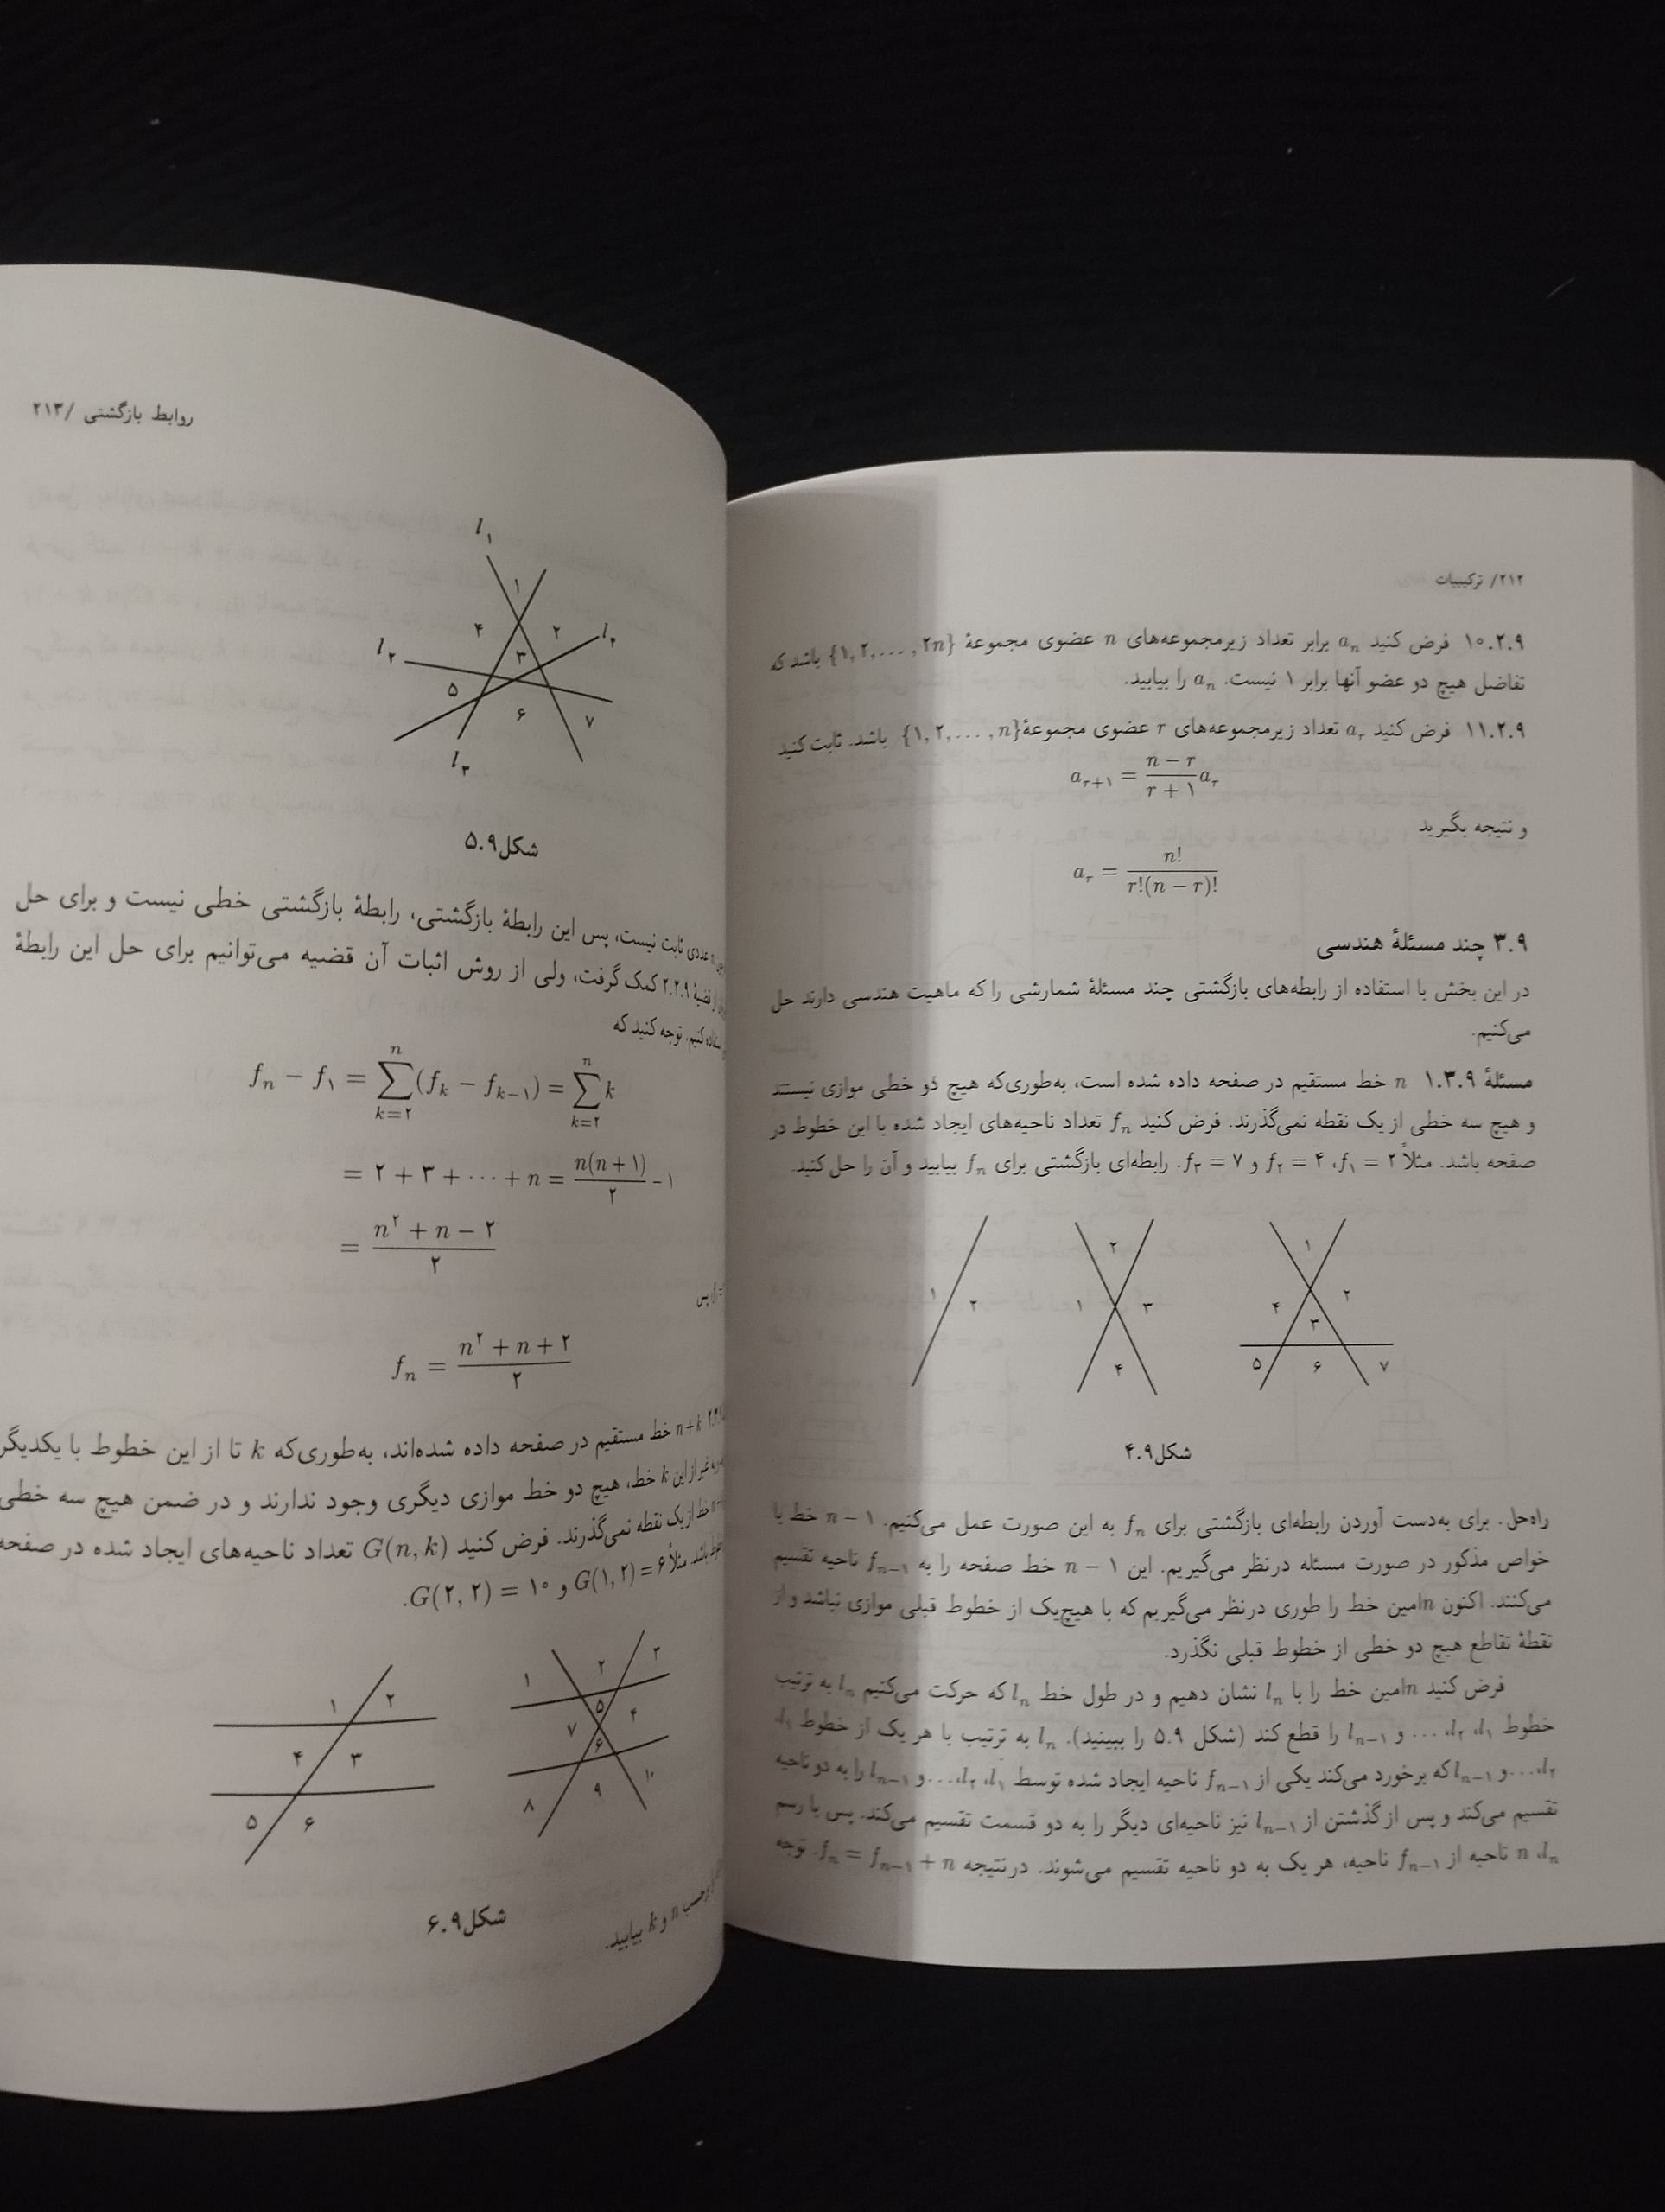 ۲۱۲/ ترکیبیات
۱۰.۲.۹ فرض کنید aₙ برابر تعداد زیرمجموعه‌های n عضوی مجموعهٔ {۱, ۲, ..., ۲n} باشد که
تفاضل هیچ دو عضو آنها برابر ۱ نیست. aₙ را بیابید.
۱۱.۲.۹ فرض کنید aᵣ تعداد زیرمجموعه‌های r عضوی مجموعهٔ {۱, ۲, ..., n} باشد. ثابت کنید
aᵣ₊₁ = (n − r)/(r + ۱) aᵣ
و نتیجه بگیرید
aᵣ = n!/(r!(n − r)!)
۳.۹ چند مسئلهٔ هندسی
در این بخش با استفاده از رابطه‌های بازگشتی چند مسئلهٔ شمارشی را که ماهیت هندسی دارند حل
می‌کنیم.
مسئلهٔ ۱.۳.۹ n خط مستقیم در صفحه داده شده است، به‌طوری‌که هیچ دو خطی موازی نیستند
و هیچ سه خطی از یک نقطه نمی‌گذرند. فرض کنید fₙ تعداد ناحیه‌های ایجاد شده با این خطوط در
صفحه باشد. مثلاً f₁ = ۲، f₂ = ۴ و f₃ = ۷. رابطه‌ای بازگشتی برای fₙ بیابید و آن را حل کنید.
۱ ۲
۱ ۲ ۳ ۴
۱ ۲ ۳ ۴ ۵ ۶ ۷
شکل ۴.۹
راه‌حل. برای به‌دست آوردن رابطه‌ای بازگشتی برای fₙ به این صورت عمل می‌کنیم. n − ۱ خط با
خواص مذکور در صورت مسئله درنظر می‌گیریم. این n − ۱ خط صفحه را به fₙ₋₁ ناحیه تقسیم
می‌کنند. اکنون nامین خط را طوری درنظر می‌گیریم که با هیچ‌یک از خطوط قبلی موازی نباشد و از
نقطهٔ تقاطع هیچ دو خطی از خطوط قبلی نگذرد.
فرض کنید nامین خط را با lₙ نشان دهیم و در طول خط lₙ که حرکت می‌کنیم lₙ به ترتیب
خطوط l₁، l₂، ... و lₙ₋₁ را قطع کند (شکل ۵.۹ را ببینید). lₙ به ترتیب با هر یک از خطوط l₁،
l₂،... و lₙ₋₁ که برخورد می‌کند یکی از fₙ₋₁ ناحیه ایجاد شده توسط l₁، l₂،... و lₙ₋₁ را به دو ناحیه
تقسیم می‌کند و پس از گذشتن از lₙ₋₁ نیز ناحیه‌ای دیگر را به دو قسمت تقسیم می‌کند. پس با رسم
lₙ، n ناحیه از fₙ₋₁ ناحیه، هر یک به دو ناحیه تقسیم می‌شوند. درنتیجه fₙ = fₙ₋₁ + n. توجه
روابط بازگشتی /۲۱۳
l₁ l₂ l₃ l₄
۱ ۲ ۳ ۴ ۵ ۶ ۷
شکل ۵.۹
عددی ثابت نیست، پس این رابطهٔ بازگشتی، رابطهٔ بازگشتی خطی نیست و برای حل
از قضیهٔ ۲.۲.۹ کمک گرفت، ولی از روش اثبات آن قضیه می‌توانیم برای حل این رابطهٔ
استفاده کنیم. توجه کنید که
fₙ − f₁ = ∑ₖ₌₂ⁿ (fₖ − fₖ₋₁) = ∑ₖ₌₂ⁿ k
= ۲ + ۳ + ··· + n = n(n + ۱)/۲ − ۱
= (n² + n − ۲)/۲
پس
fₙ = (n² + n + ۲)/۲
n + k خط مستقیم در صفحه داده شده‌اند، به‌طوری‌که k تا از این خطوط با یکدیگر
غیر از این k خط، هیچ دو خط موازی دیگری وجود ندارند و در ضمن هیچ سه خطی
خط از یک نقطه نمی‌گذرند. فرض کنید G(n, k) تعداد ناحیه‌های ایجاد شده در صفحه
باشد. مثلاً G(۱, ۲) = ۶ و G(۲, ۲) = ۱۰.
۱ ۲ ۳ ۴ ۵ ۶
۱ ۲ ۳ ۴ ۵ ۶ ۷ ۸ ۹ ۱۰
شکل ۶.۹
برحسب n و k بیابید.